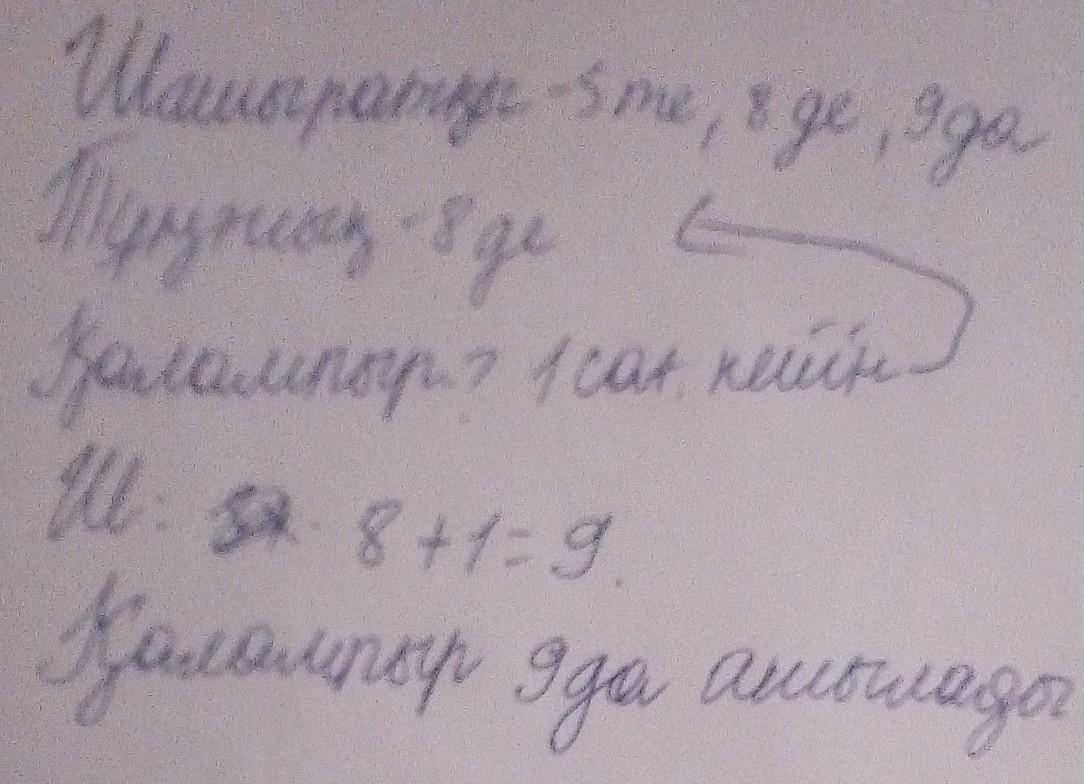 Шашыратқы - 5 те, 8 де, 9 да
Тұңғиық - 8 де
Қалампыр ? 1 сағ. кейін
Ш: 8 + 1 = 9.
Қалампыр 9 да ашылады